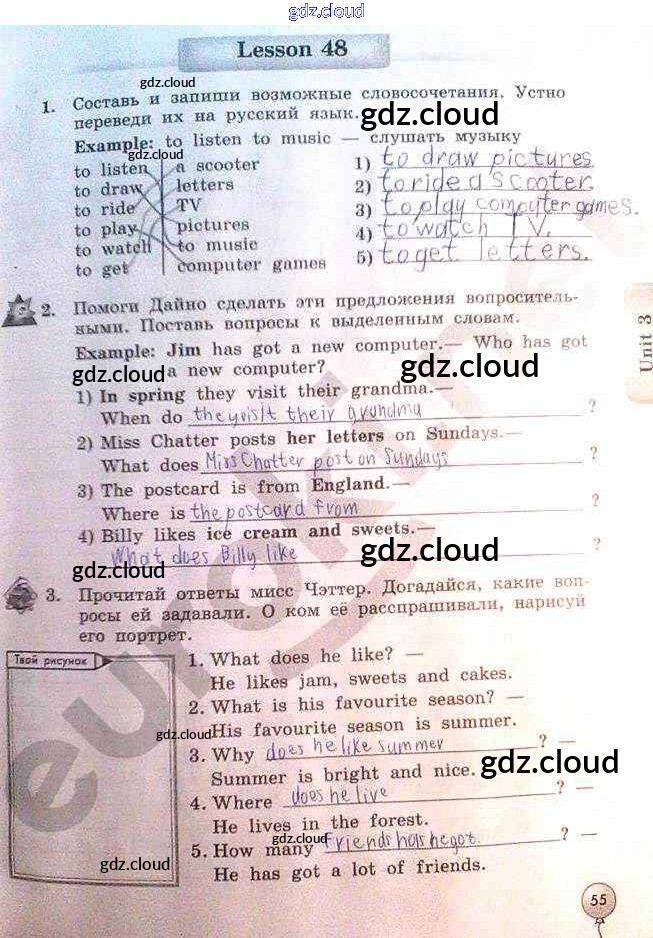 gdz.cloud
Lesson 48
gdz.cloud
1. Составь и запиши возможные словосочетания. Устно
переведи их на русский язык.
gdz.cloud
Example: to listen to music — слушать музыку
gdz.cloud
to listen a scooter
to draw letters
to ride TV
to play pictures
to watch to music
to get computer games
1) to draw pictures
2) to ride a scooter.
3) to play computer games.
4) to watch TV.
5) to get letters.
2. Помоги Дайно сделать эти предложения вопроситель-
ными. Поставь вопросы к выделенным словам.
Example: Jim has got a new computer.— Who has got
a new computer?
gdz.cloud
gdz.cloud
1) In spring they visit their grandma.—
When do they visit their grandma ?
2) Miss Chatter posts her letters on Sundays.—
What does Miss Chatter post on Sundays ?
3) The postcard is from England.—
Where is the postcard from ?
4) Billy likes ice cream and sweets.—
What does Billy like ?
gdz.cloud
gdz.cloud
3. Прочитай ответы мисс Чэттер. Догадайся, какие воп-
росы ей задавали. О ком её расспрашивали, нарисуй
его портрет.
Твой рисунок
1. What does he like? —
He likes jam, sweets and cakes.
2. What is his favourite season? —
His favourite season is summer.
gdz.cloud
3. Why does he like summer ? —
Summer is bright and nice.
gdz.cloud
4. Where does he live ? —
He lives in the forest.
gdz.cloud
5. How many friends has he got ? —
He has got a lot of friends.
gdz.cloud
Unit 3
55
euroki